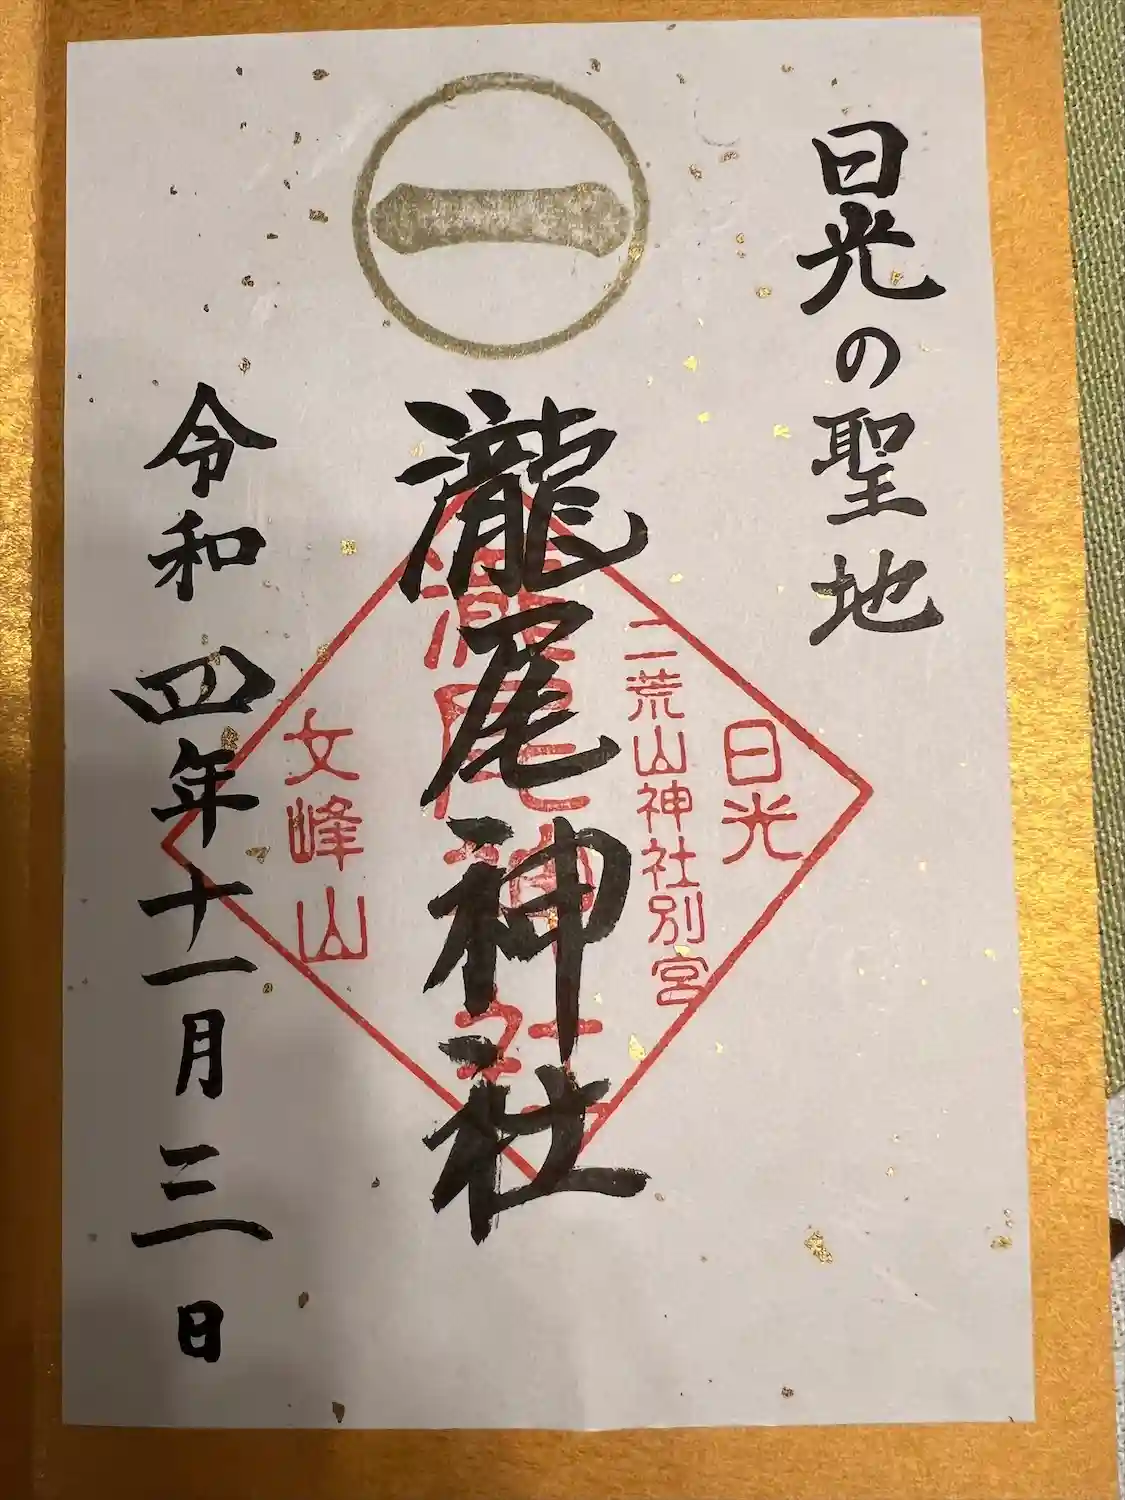 日光の聖地
一
瀧尾神社
日光
二荒山神社別宮
瀧尾神社
女峰山
令和四年十一月三日